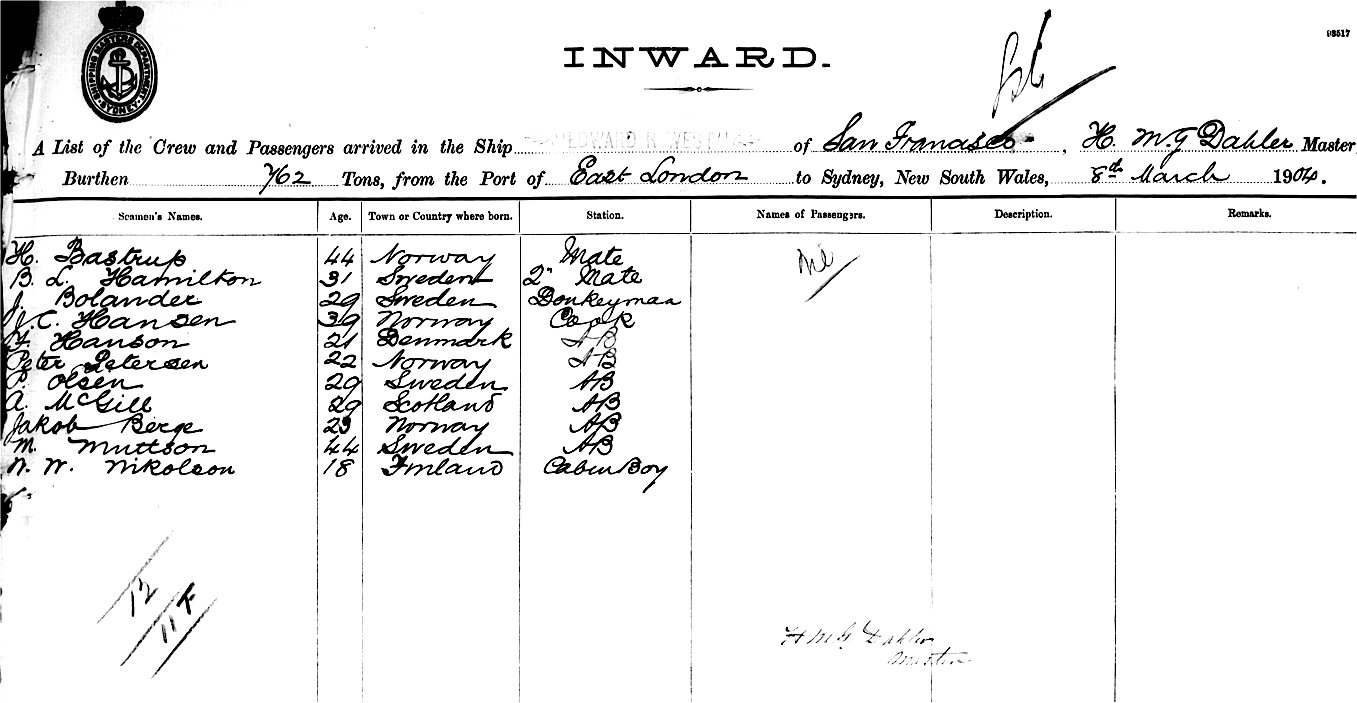 SHIPPING MASTERS DEPARTMENT
SYDNEY
98517
INWARD.
A List of the Crew and Passengers arrived in the Ship EDWARD R. WEST of San Francisco, H. M. G Dahler Master
Burthen 762 Tons, from the Port of East London to Sydney, New South Wales, 8th March 1904.
Seamen's Names. Age. Town or Country where born. Station. Names of Passengers. Description. Remarks.
H. Bastrup 44 Norway Mate Nil
B. L. Hamilton 31 Sweden 2" Mate
J. Bolander 29 Sweden Donkeyman
J. C. Hansen 39 Norway Cook
Hanson 21 Denmark AB
Peter Petersen 22 Norway AB
P. Olsen 29 Sweden AB
A. McGill 29 Scotland AB
Jakob Berge 23 Norway AB
M. Muttson 44 Sweden AB
N. W. Nikolson 18 Finland Cabin Boy
12
11
H M G Dahler
Master